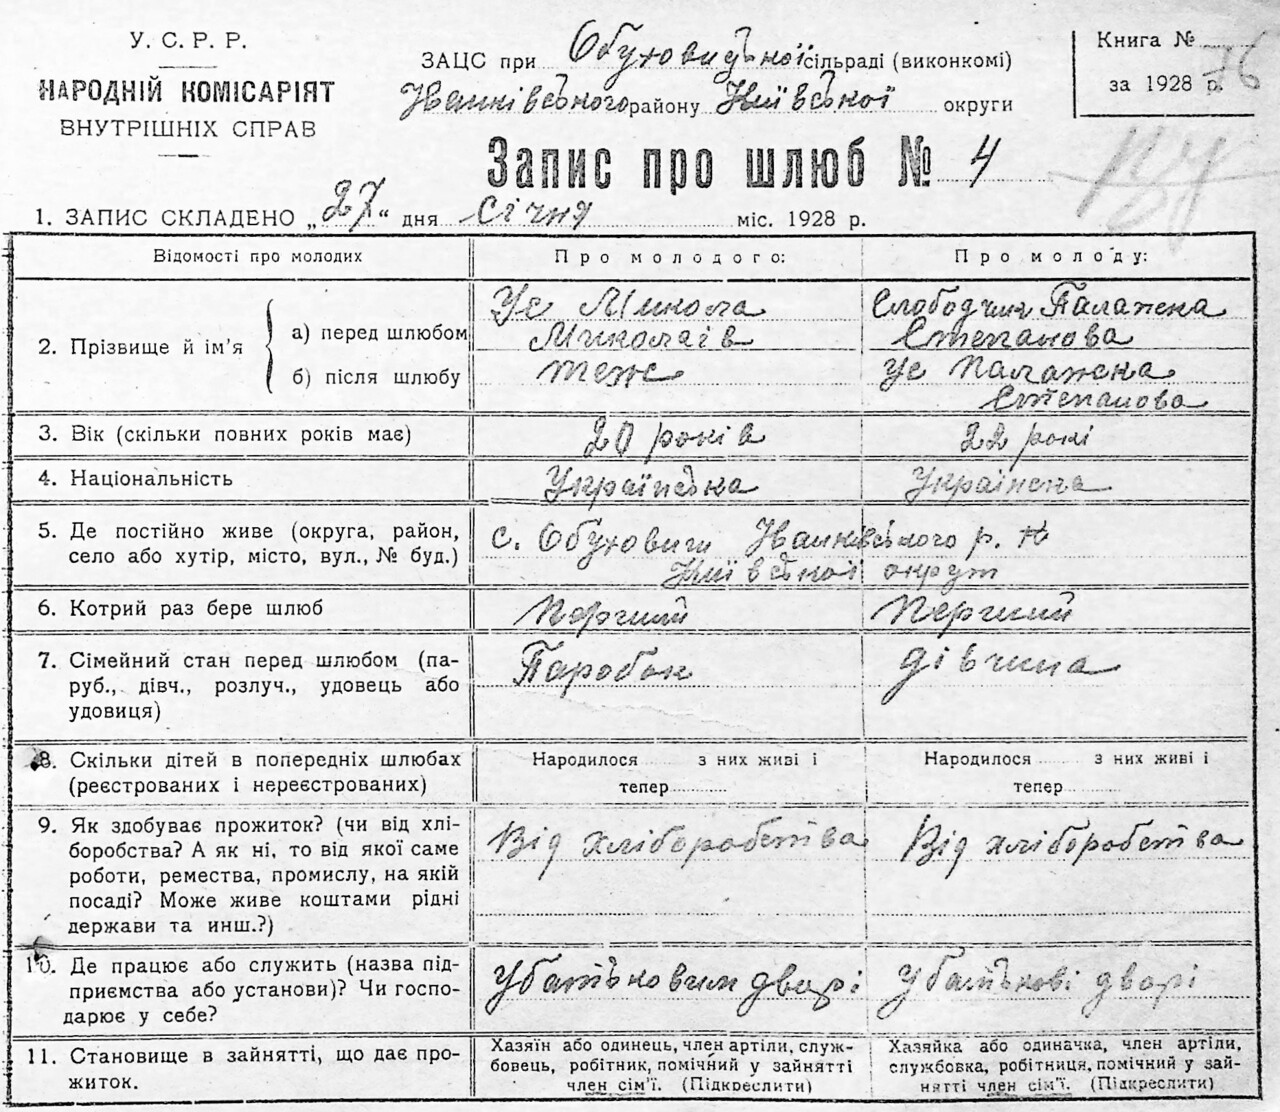 У. С. Р. Р.
НАРОДНІЙ КОМІСАРІЯТ
ВНУТРІШНІХ СПРАВ
ЗАЦС при Обуховицької сільраді (виконкомі)
Іванківського району Київської округи
Книга №
за 1928 р. 76
Запис про шлюб № 4
1. ЗАПИС СКЛАДЕНО „27“ дня січня міс. 1928 р.
Відомості про молодих
Про молодого:
Про молоду:
2. Прізвище й ім'я
а) перед шлюбом
Ус Микола
Миколаїв
Слободчик Палажка
Степанова
б) після шлюбу
теж
Ус Палажка
Степанова
3. Вік (скільки повних років має)
20 років
22 рокі
4. Національність
Українська
Українска
5. Де постійно живе (округа, район,
село або хутір, місто, вул., № буд.)
с. Обуховичи Іванківського р.
Київської округи
6. Котрий раз бере шлюб
Перчий
Перчий
7. Сімейний стан перед шлюбом (па-
руб., дівч., розлуч., удовець або
удовиця)
Паробок
дівчина
8. Скільки дітей в попередніх шлюбах
(реєстрованих і нереєстрованих)
Народилося з них живі і
тепер
Народилося з них живі і
тепер
9. Як здобуває прожиток? (чи від хлі-
боробства? А як ні, то від якої саме
роботи, ремества, промислу, на якій
посаді? Може живе коштами рідні
держави та инш.?)
Від хліборобства
Від хліборобства
10. Де працює або служить (назва під-
приємства або установи)? Чи госпо-
дарює у себе?
У батьковим дворі
У батькові дворі
11. Становище в зайнятті, що дає про-
житок.
Хазяїн або одинець, член артіли, служ-
бовець, робітник, помічний у зайнятті
член сім'ї. (Підкреслити)
Хазяйка або одиначка, член артіли,
службовка, робітниця, помічний у зай-
нятті член сім'ї. (Підкреслити)